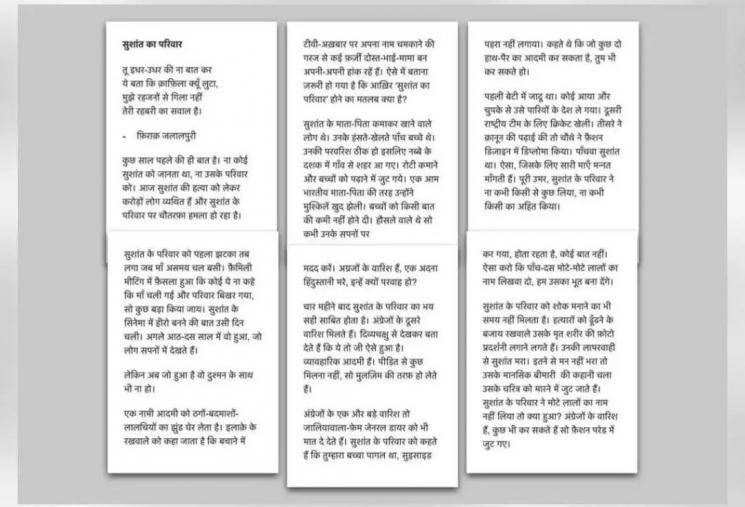 सुशांत का परिवार
तू इधर-उधर की ना बात कर
ये बता कि क़ाफ़िला क्यूँ लुटा,
मुझे रहजनों से गिला नहीं
तेरी रहबरी का सवाल है।
- फ़िराक़ जलालपुरी
कुछ साल पहले की ही बात है। ना कोई
सुशांत को जानता था, ना उसके परिवार
को। आज सुशांत की हत्या को लेकर
करोड़ों लोग व्यथित हैं और सुशांत के
परिवार पर चौतरफ़ा हमला हो रहा है।
टीवी-अख़बार पर अपना नाम चमकाने की
गरज से कई फ़र्ज़ी दोस्त-भाई-मामा बन
अपनी-अपनी हांक रहे हैं। ऐसे में बताना
ज़रूरी हो गया है कि आख़िर 'सुशांत का
परिवार' होने का मतलब क्या है?
सुशांत के माता-पिता कमाकर खाने वाले
लोग थे। उनके हंसते-खेलते पाँच बच्चे थे।
उनकी परवरिश ठीक हो इसलिए नब्बे के
दशक में गाँव से शहर आ गए। रोटी कमाने
और बच्चों को पढ़ाने में जुट गये। एक आम
भारतीय माता-पिता की तरह उन्होंने
मुश्किलें खुद झेली। बच्चों को किसी बात
की कमी नहीं होने दी। हौसले वाले थे सो
कभी उनके सपनों पर
पहरा नहीं लगाया। कहते थे कि जो कुछ दो
हाथ-पैर का आदमी कर सकता है, तुम भी
कर सकते हो।
पहली बेटी में जादू था। कोई आया और
चुपके से उसे परियों के देश ले गया। दूसरी
राष्ट्रीय टीम के लिए क्रिकेट खेली। तीसरे ने
क़ानून की पढ़ाई की तो चौथे ने फ़ैशन
डिज़ाइन में डिप्लोमा किया। पाँचवा सुशांत
था। ऐसा, जिसके लिए सारी माएँ मन्नत
माँगती हैं। पूरी उमर, सुशांत के परिवार ने
ना कभी किसी से कुछ लिया, ना कभी
किसी का अहित किया।
सुशांत के परिवार को पहला झटका तब
लगा जब माँ असमय चल बसी। फ़ैमिली
मीटिंग में फ़ैसला हुआ कि कोई ये ना कहे
कि माँ चली गई और परिवार बिखर गया,
सो कुछ बड़ा किया जाय। सुशांत के
सिनेमा में हीरो बनने की बात उसी दिन
चली। अगले आठ-दस साल में वो हुआ, जो
लोग सपनों में देखते हैं।
लेकिन अब जो हुआ है वो दुश्मन के साथ
भी ना हो।
एक नामी आदमी को ठगों-बदमाशों-
लालचियों का झुंड घेर लेता है। इलाक़े के
रखवाले को कहा जाता है कि बचाने में
मदद करें। अंग्रजों के वारिश हैं, एक अदना
हिंदुस्तानी मरे, इन्हें क्यों परवाह हो?
चार महीने बाद सुशांत के परिवार का भय
सही साबित होता है। अंग्रेजों के दूसरे
वारिश मिलते हैं। दिव्यचक्षु से देखकर बता
देते हैं कि ये तो जी ऐसे हुआ है।
व्यावहारिक आदमी हैं। पीड़ित से कुछ
मिलना नहीं, सो मुलज़िम की तरफ़ हो लेते
हैं।
अंग्रेजों के एक और बड़े वारिश तो
जालियावाला-फ़ेम जेनरल डायर को भी
मात दे देते हैं। सुशांत के परिवार को कहते
हैं कि तुम्हारा बच्चा पागल था, सुइसाइड
कर गया, होता रहता है, कोई बात नहीं।
ऐसा करो कि पाँच-दस मोटे-मोटे लालों का
नाम लिखवा दो, हम उसका भूत बना देंगे।
सुशांत के परिवार को शोक मनाने का भी
समय नहीं मिलता है। हत्यारों को ढूँढने के
बजाय रखवाले उसके मृत शरीर की फ़ोटो
प्रदर्शनी लगाने लगते हैं। उनकी लापरवाही
से सुशांत मरा। इतने से मन नहीं भरा तो
उसके मानसिक बीमारी की कहानी चला
उसके चरित्र को मारने में जुट जाते हैं।
सुशांत के परिवार ने मोटे लालों का नाम
नहीं लिया तो क्या हुआ? अंग्रेजों के वारिश
हैं, कुछ भी कर सकते हैं सो फ़ैशन परेड में
जुट गए।